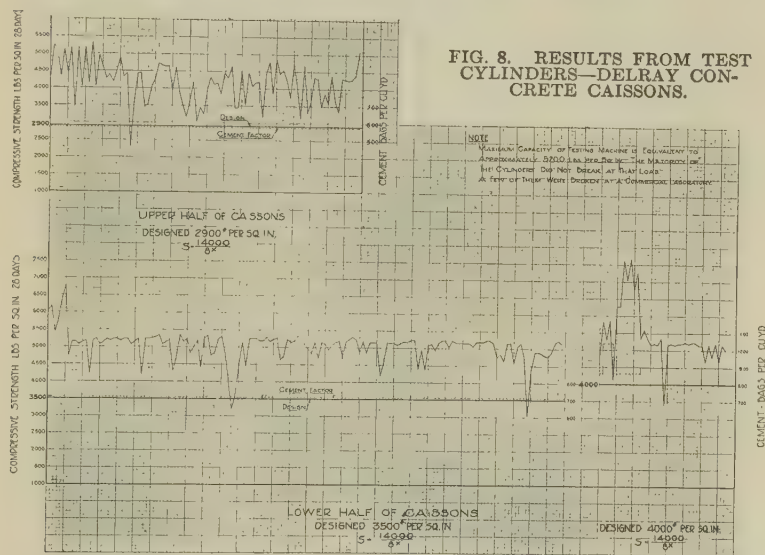 FIG. 8. RESULTS FROM TEST
CYLINDERS—DELRAY CON-
CRETE CAISSONS.
COMPRESSIVE STRENGTH LBS PER SQ.IN. 28 DAYS
5500
5000
4500
4000
3500
2900
2500
2000
1500
1000
DESIGN
CEMENT FACTOR
700
600
500
CEMENT BAGS PER CU.YD
NOTE
MAXIMUM CAPACITY OF TESTING MACHINE IS EQUIVALENT TO
APPROXIMATELY 5200 LBS PER SQ.IN. THE MAJORITY OF
THE CYLINDERS DID NOT BREAK AT THAT LOAD
A FEW OF THEM WERE BROKEN AT A COMMERCIAL LABORATORY
UPPER HALF OF CAISSONS
DESIGNED 2900# PER SQ.IN.
S = 14000
8x
COMPRESSIVE STRENGTH LBS PER SQ.IN. 28 DAYS
7500
7000
6500
6000
5500
5000
4500
4000
3500
3000
2500
2000
1000
CEMENT FACTOR
DESIGN
800
600
4000
800
700
CEMENT - BAGS PER CU.YD
LOWER HALF OF CAISSONS
DESIGNED 3500# PER SQ.IN
S = 14000
8x
DESIGNED 4000# PER SQ.IN.
S = 14000
8x